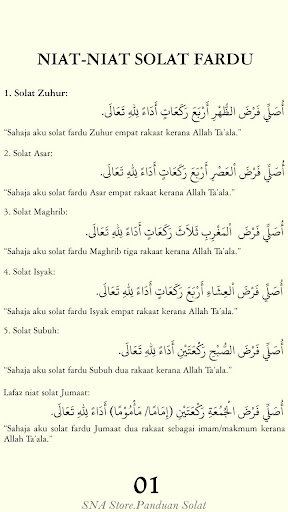 NIAT-NIAT SOLAT FARDU
1. Solat Zuhur:
أُصَلِّي فَرْضَ الظُّهْرِ أَرْبَعَ رَكَعَاتٍ أَدَاءً لِلهِ تَعَالَى.
"Sahaja aku solat fardu Zuhur empat rakaat kerana Allah Ta'ala."
2. Solat Asar:
أُصَلِّي فَرْضَ الْعَصْرِ أَرْبَعَ رَكَعَاتٍ أَدَاءً لِلهِ تَعَالَى.
"Sahaja aku solat fardu Asar empat rakaat kerana Allah Ta'ala."
3. Solat Maghrib:
أُصَلِّي فَرْضَ الْمَغْرِبِ ثَلَاثَ رَكَعَاتٍ أَدَاءً لِلهِ تَعَالَى.
"Sahaja aku solat fardu Maghrib tiga rakaat kerana Allah Ta'ala."
4. Solat Isyak:
أُصَلِّي فَرْضَ الْعِشَاءِ أَرْبَعَ رَكَعَاتٍ أَدَاءً لِلهِ تَعَالَى.
"Sahaja aku solat fardu Isyak empat rakaat kerana Allah Ta'ala."
5. Solat Subuh:
أُصَلِّي فَرْضَ الصُّبْحِ رَكْعَتَيْنِ أَدَاءً لِلهِ تَعَالَى.
"Sahaja aku solat fardu Subuh dua rakaat kerana Allah Ta'ala."
Lafaz niat solat Jumaat:
أُصَلِّي فَرْضَ الْجُمْعَةِ رَكْعَتَيْنِ (إِمَامًا/ مَأْمُوْمًا) أَدَاءً لِلهِ تَعَالَى.
"Sahaja aku solat fardu Jumaat dua rakaat sebagai imam/makmum kerana
Allah Ta'ala."
01
SNA Store.Panduan Solat